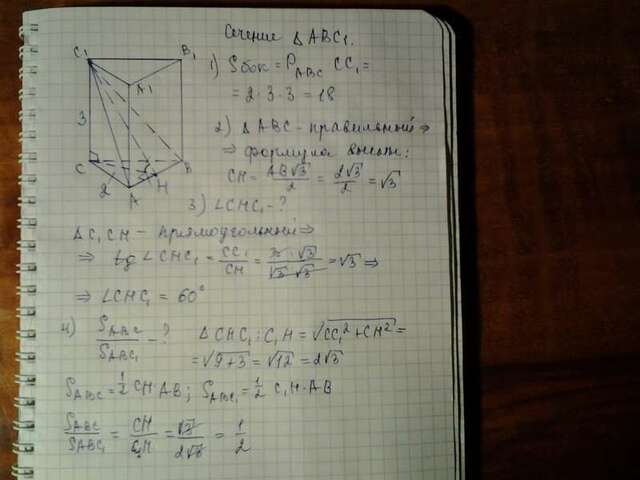 Сечение ΔABC₁.
1) Sбок = P_ABC · CC₁ =
= 2·3·3 = 18
2) ΔABC - правильный ⇒
⇒ формула высот:
CH = AB√3/2 = 2√3/2 = √3
3) ∠CHC₁ - ?
ΔC₁CH - прямоугольный ⇒
⇒ tg ∠CHC₁ = CC₁/CH = 3·√3/√3·√3 = √3 ⇒
⇒ ∠CHC₁ = 60°
4) S_ABC/S_ABC₁ - ? ΔCHC₁: C₁H = √CC₁² + CH² =
= √9+3 = √12 = 2√3
S_ABC = 1/2 CH·AB; S_ABC₁ = 1/2 C₁H·AB
S_ABC/S_ABC₁ = CH/C₁H = √3/2√3 = 1/2
C₁
B₁
A1
3
C
B
2
H
A